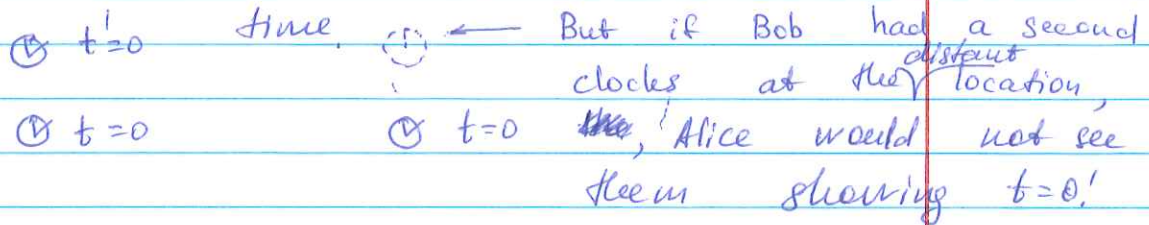 t'=0 time. ← But if Bob had a second
distant
clocks at the location,
t=0 t=0 , Alice would not see
them showing t=0!